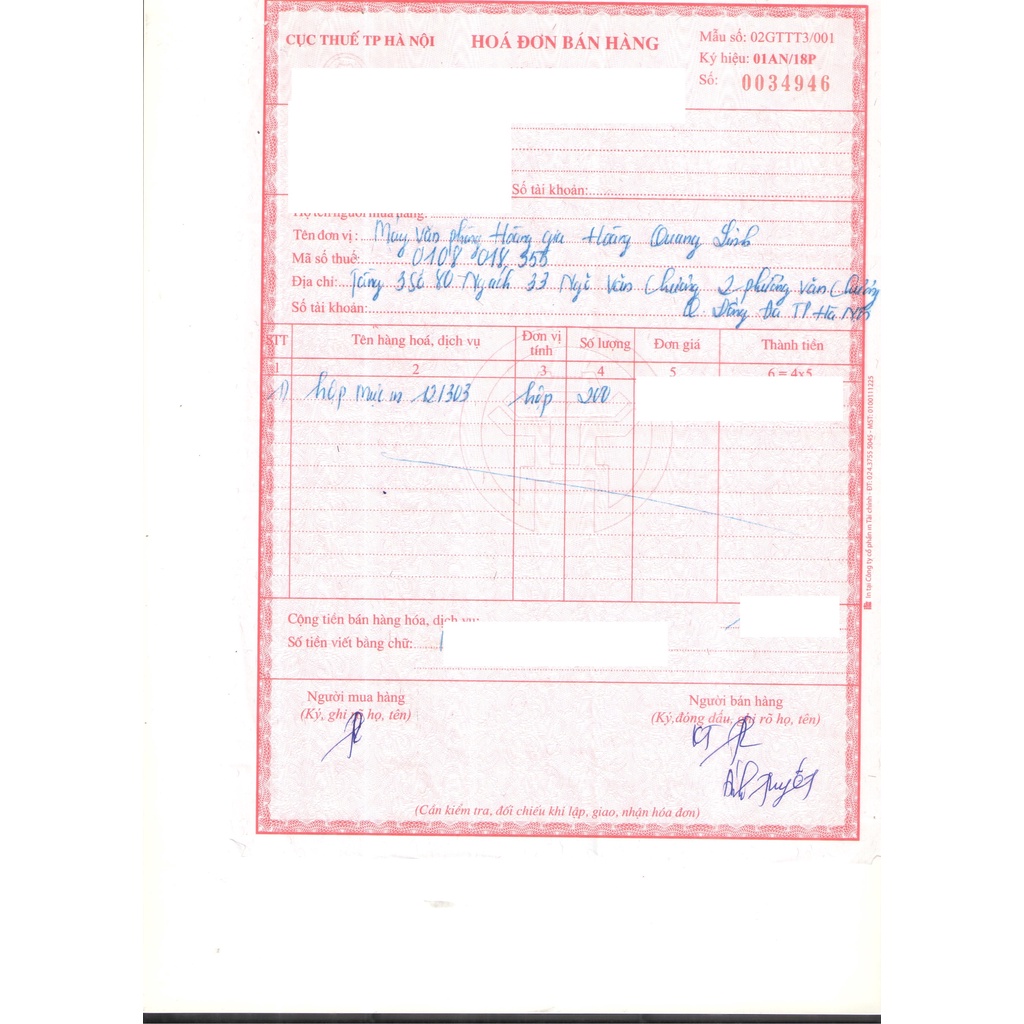 CỤC THUẾ TP HÀ NỘI
HOÁ ĐƠN BÁN HÀNG
Mẫu số: 02GTTT3/001
Ký hiệu: 01AN/18P
Số: 0034946
Số tài khoản:
Họ tên người mua hàng:
Tên đơn vị: Máy Văn phòng Hoàng gia Hoàng Quang Linh
Mã số thuế: 0108 018 353
Địa chỉ: Tầng 3 Số 80 Ngách 33 Ngõ Văn Chương 2 phường Văn Chương
Số tài khoản: Q. Đống Đa TP Hà Nội
STT Tên hàng hoá, dịch vụ Đơn vị tính Số lượng Đơn giá Thành tiền
1 2 3 4 5 6 = 4x5
1) hộp mực in 12A303 hộp 200
Cộng tiền bán hàng hóa, dịch vụ:
Số tiền viết bằng chữ:
Người mua hàng
(Ký, ghi rõ họ, tên)
Người bán hàng
(Ký,đóng dấu, ghi rõ họ, tên)
KT
Ánh Tuyết
(Cần kiểm tra, đối chiếu khi lập, giao, nhận hóa đơn)
In tại Công ty cổ phần in Tài chính - ĐT: 024.3755 5045 - MST: 0100111225